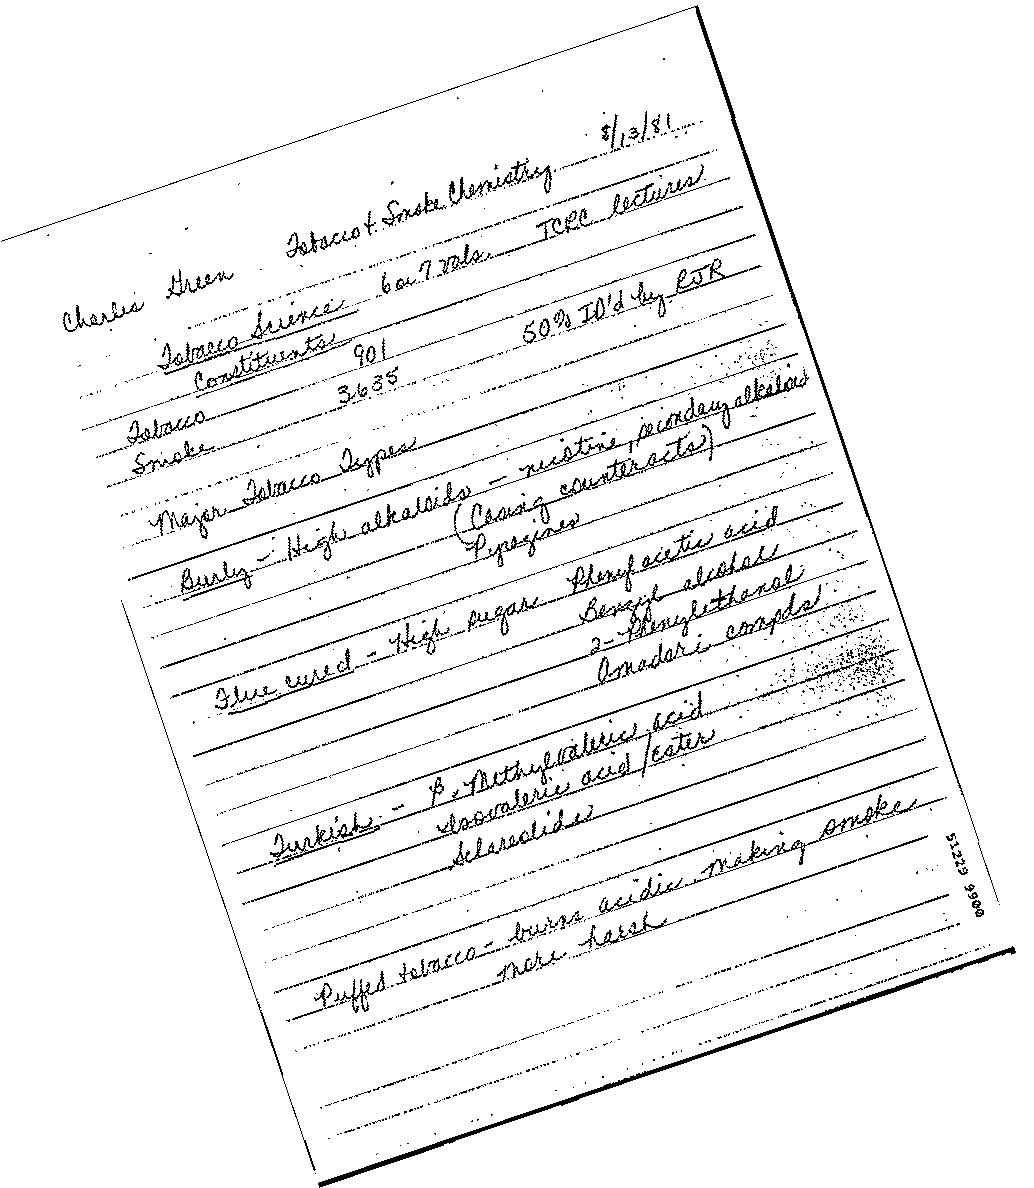 8/13/81
Charles Green Tobacco & Smoke Chemistry
Tobacco Science 6 or 7 vols. TCRC lectures
Constituents
Tobacco 901 50% ID'd by RJR
Smoke 3635
Major Tobacco Types
Burly - High alkaloids - nicotine, secondary alkaloid
(Casing counteracts)
Pyrazines
Flue cured - High sugar Phenylacetic acid
Benzyl alcohol
2-Phenylethanol
Amadori compds
Turkish - β-Methylvaleric acid
Isovaleric acid/ester
Sclareolide
Puffed tobacco - burns acidic making smoke
more harsh
51229 9900